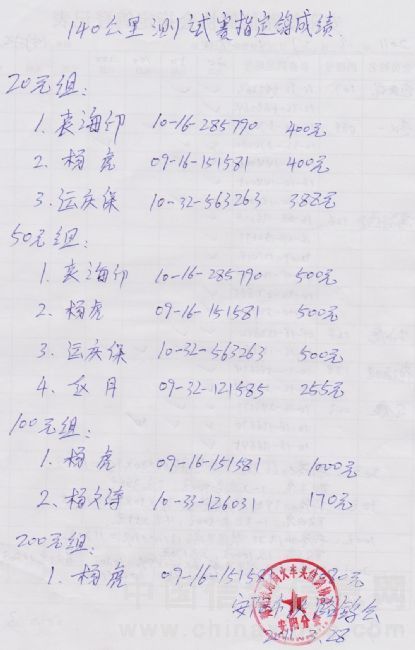 140公里测试赛指定鸽成绩
20元组:
1. 袁海卯 10-16-285790 400元
2. 杨虎 09-16-151581 400元
3. 运庆保 10-32-563263 388元
50元组:
1. 袁海卯 10-16-285790 500元
2. 杨虎 09-16-151581 500元
3. 运庆保 10-32-563263 500元
4. 赵月 09-32-121585 255元
100元组:
1. 杨虎 09-16-151581 1000元
2、杨文涛 10-33-126031 170元
200元组:
1. 杨虎 09-16-1515
元
安阳 信鸽会
安阳分会
28